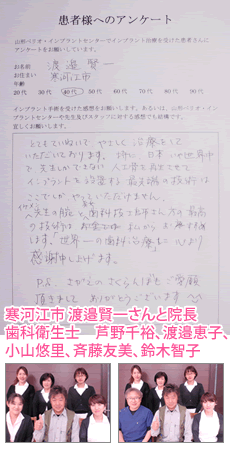 患者様へのアンケート
山形ペリオ・インプラントセンターでインプラント治療を受けた患者さんに
アンケートをお願いしています。
お名前 渡邉賢一
お住まい 寒河江市
年齢
20代 30代 40代 50代 60代 70代 80代 90代
インプラント手術を受けた感想をお願いします。あるいは、山形ペリオ・イン
プラントセンターや先生及びスタッフに対する感想でも結構です。
宜しくお願いします。
とてもていねいで やさしく 治療をして
いただいております。 特に 日本 いや世界中
で 先生しかできない 人工骨を
インプラントを 最先端の技術は
ここでしか やっていただけません。
先生の腕と 歯科技工士 さんの 最高
の技術は お金では
ます。「世界一の歯科治療」に 心より
感謝申し上げます。
P.S. さがえの さくらんぼを ご
頂きまして ありがとうございます
寒河江市 渡邉賢一さんと院長
歯科衛生士 芦野千裕、渡邉恵子、
小山悠里、斉藤友美、鈴木智子